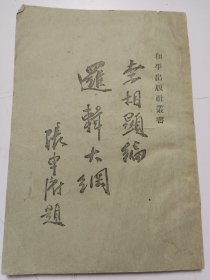 和平出版社叢書
李相顯編
邏輯大綱
張申府題